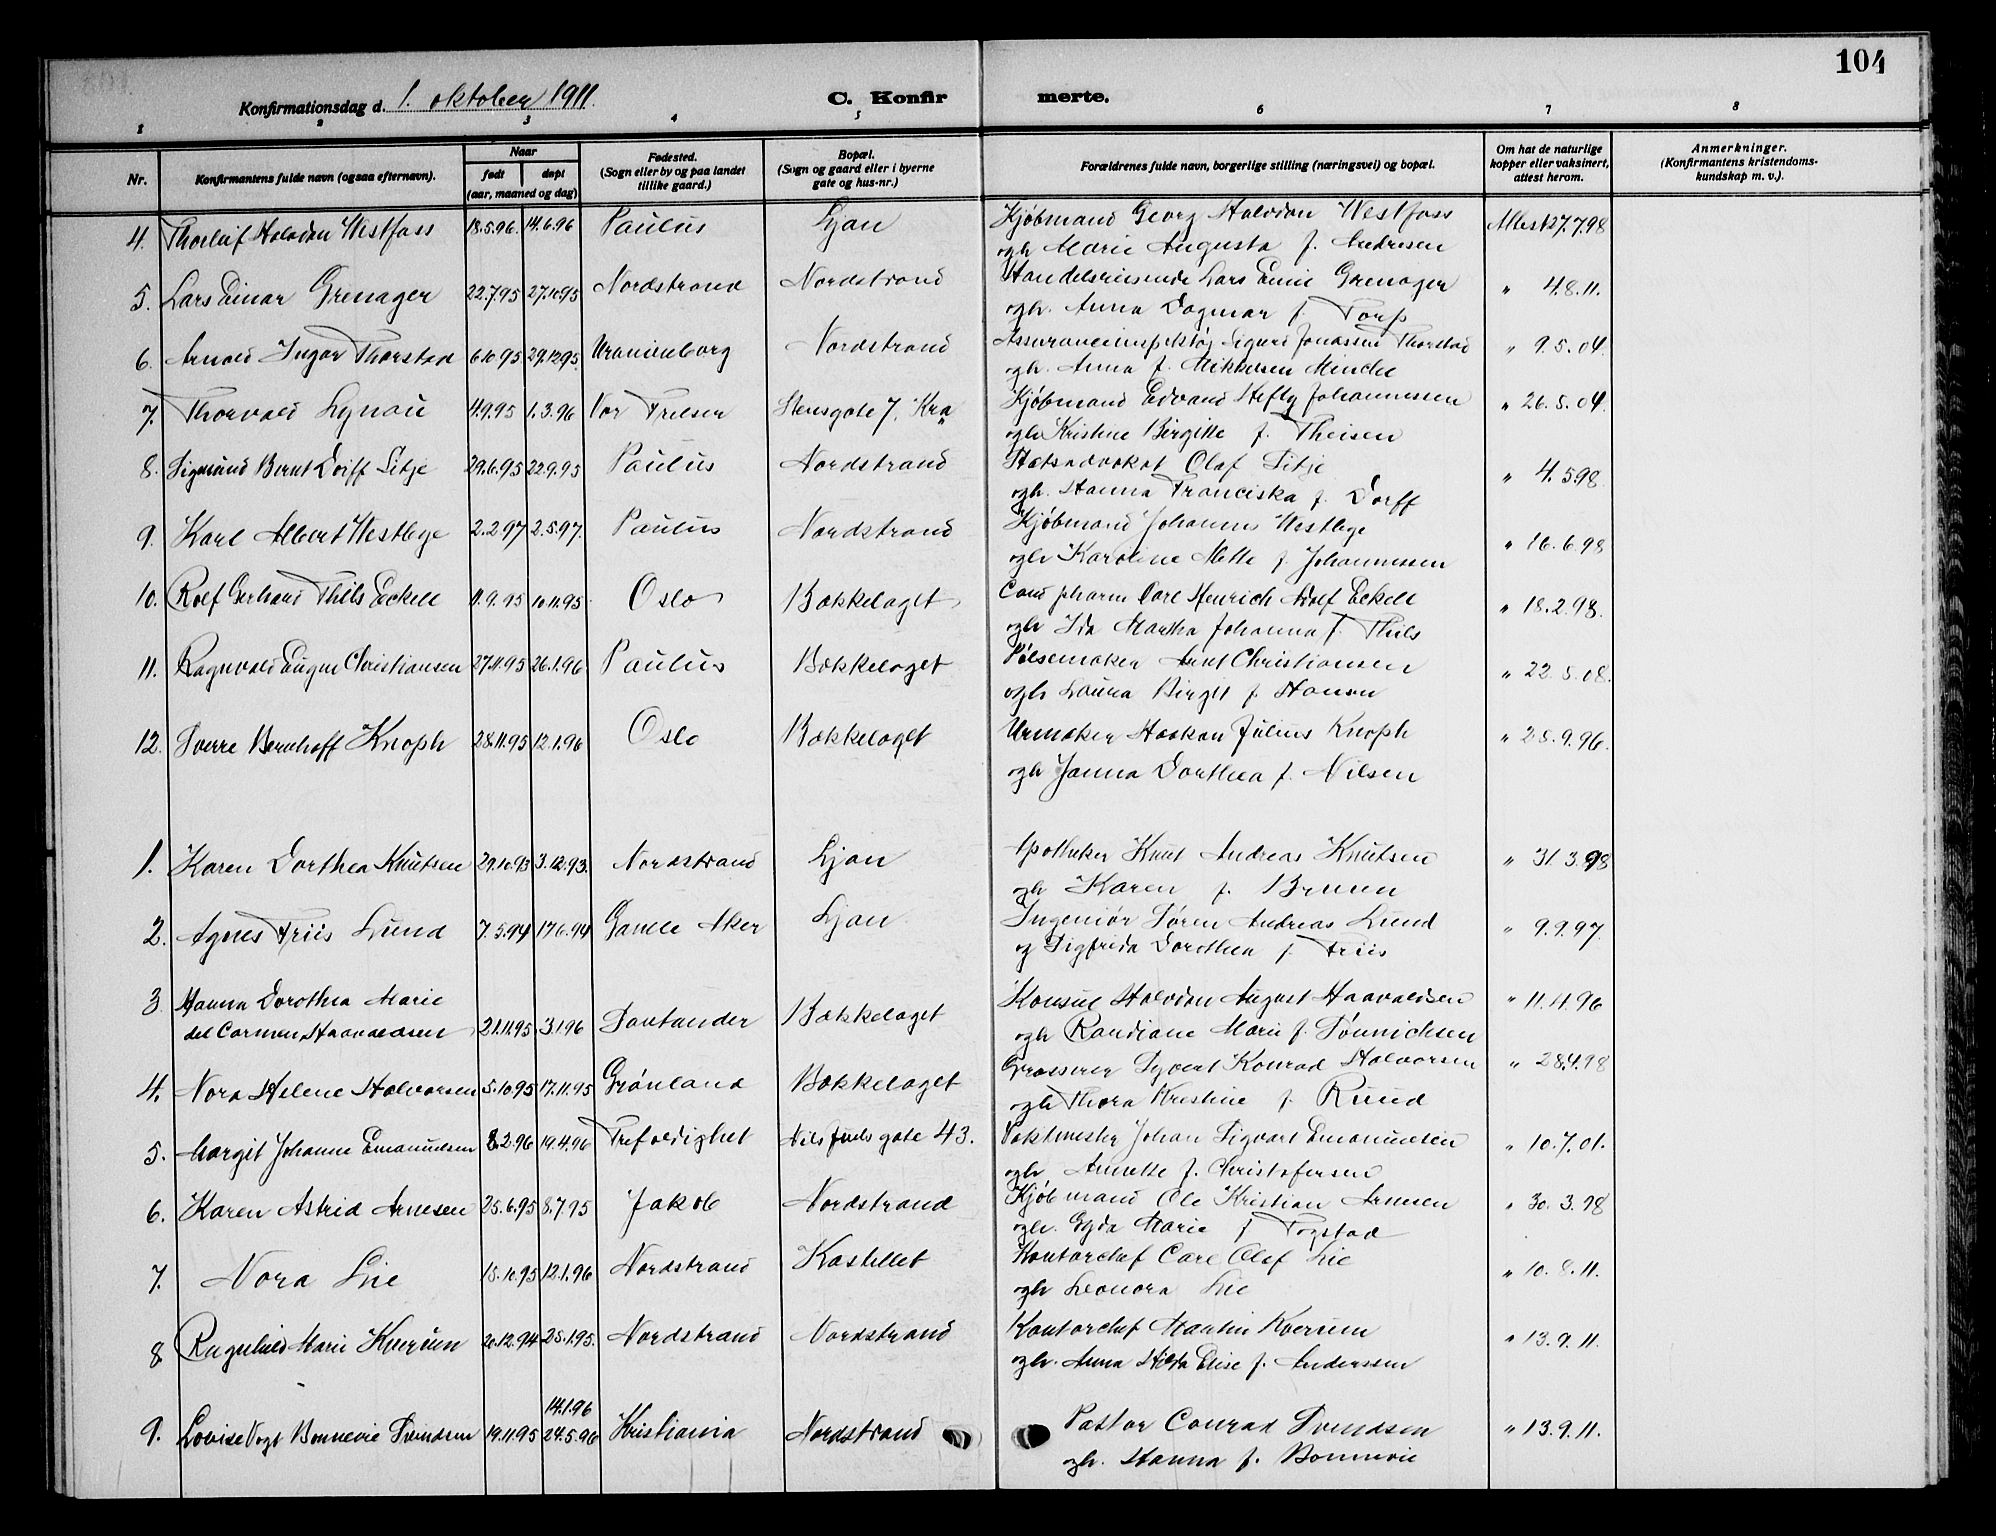 104
Konfirmationsdag d. 1. oktober 1911.
C. Konfir merte.
1 2 3 4 5 6 7 8
Nr. Konfirmantens fulde navn (ogsaa efternavn). Naar født døpt (aar, maaned og dag) Fødested. (Sogn eller by og paa landet tillike gaard.) Bopæl. (Sogn og gaard eller i byerne gate og hus-nr.) Forældrenes fulde navn, borgerlige stilling (næringsvei) og bopæl. Om hat de naturlige kopper eller vaksinert, attest herom. Anmerkninger. (Konfirmantens kristendoms-kundskap m. v.).
4. Thorleif Halvdan Westfass 18.5.96. 14.6.96 Paulus Ljan Kjøbmand Georg Halvdan Westfass Attest 27.7.98
ogh Marie Augusta f. Andresen
5. Lars Einar Grenager 22.7.95 27.10.95 Nordstrand Nordstrand Handelsreisende Lars Emil Grenager " 4.8.11.
ogh. Anna Dagmar f. Torp
6. Arnold Ingar Thorstad 6.10.95 29.12.95. Uranienborg Nordstrand Assuranceinspektør Sigurd Jonassen Thorstad " 9.5.04.
ogh. Anna f. Mikkelsen Minche
7. Thorvald Lynau 11.9.95 1.3.96 Vor Frelser Stensgate 7. Kra Kjøbmand Edvard Hefty Johannessen " 26.5.04.
ogh Kristine Birgitte f. Theisen
8. Sigmund Bernt Dorff Sitje 29.6.95 22.9.95 Paulus Nordstrand Statsadvokat Olaf Sitje " 4.5.98.
ogh. Hanna Franciska f. Dorff
9. Karl Albert Westbye 2.2.97 2.5.97. Paulus Nordstrand Kjøbmand Johannes Westbye " 16.6.98
ogh Karoline Mette f. Johannessen
10. Rolf Gerhard Thils Eckell 11.9.95 10.11.95. Oslo Bækkelaget Cand pharm Carl Henrich Adolf Eckell " 18.2.98.
ogh Ida Martha Johanna f. Thils
11. Ragnvald Eugen Christiansen 27.11.95 26.1.96 Paulus Bækkelaget Pølsemaker Arnt Christiansen " 22.5.08.
ogh Laura Birgit f. Hansen
12. Sverre Bernhoff Knoph 28.11.95 12.1.96 Oslo Bækkelaget Urmaker Haakon Julius Knoph " 25.9.96.
ogh Janna Dorthea f. Nilsen
1. Karen Dorthea Knutsen 29.10.93 3.12.93. Nordstrand Ljan Apotheker Knut Andreas Knutsen " 31.3.98
ogh Karen f. Bruun
2. Agnes Friis Lund 7.5.94 17.6.94 Gamle Aker Ljan Ingeniør Søren Andreas Lund " 9.9.97.
og Sigfrida Dorothea f. Friis
3 Hanna Dorothea Marie
del Carmen Haavaldsen 21.11.95. 3.1.96 Santander Bækkelaget Konsul Halvdan August Haavaldsen " 11.4.96
ogh Randiane Marie f. Sønnichsen
4. Nora Helene Halvorsen 5.10.95 17.11.95 Grønland Bækkelaget Grosserer Syvert Konrad Halvorsen " 28.4.98
ogh Thora Kristine f. Ruud
5. Margit Johanne Emanuelsen 8.2.96 19.4.96 Trefoldighet Nils Juels gate 43. Vaktmester Johan Sigvart Emanuelsen " 10.7.01.
ogh. Annette f. Christofersen
6. Karen Astrid Arnesen 25.6.95 8.7.95 Jakob Nordstrand Kjøbmand Ole Kristian Arnesen " 30.3.98
ogh. Gyda Marie f Fogstad
7. Nora Lie 15.10.95 12.1.96 Nordstrand Kastellet Kontorchef Carl Olaf Lie " 10.8.11.
ogh Leonora Lie
8. Ragnhild Marie Kverum 20.12.94 25.1.95. Nordstrand Nordstrand Kontorchef Martin Kverum " 13.9.11.
ogh. Anna Hilda Elise f. Anderssen
14.1.96
9. Lovise Vogt Bonnevie Svendsen 19.11.95 24.5.96 Kristiania Nordstrand Pastor Conrad Svendsen " 13.9.11.
ogh. Hanna f. Bonnevie